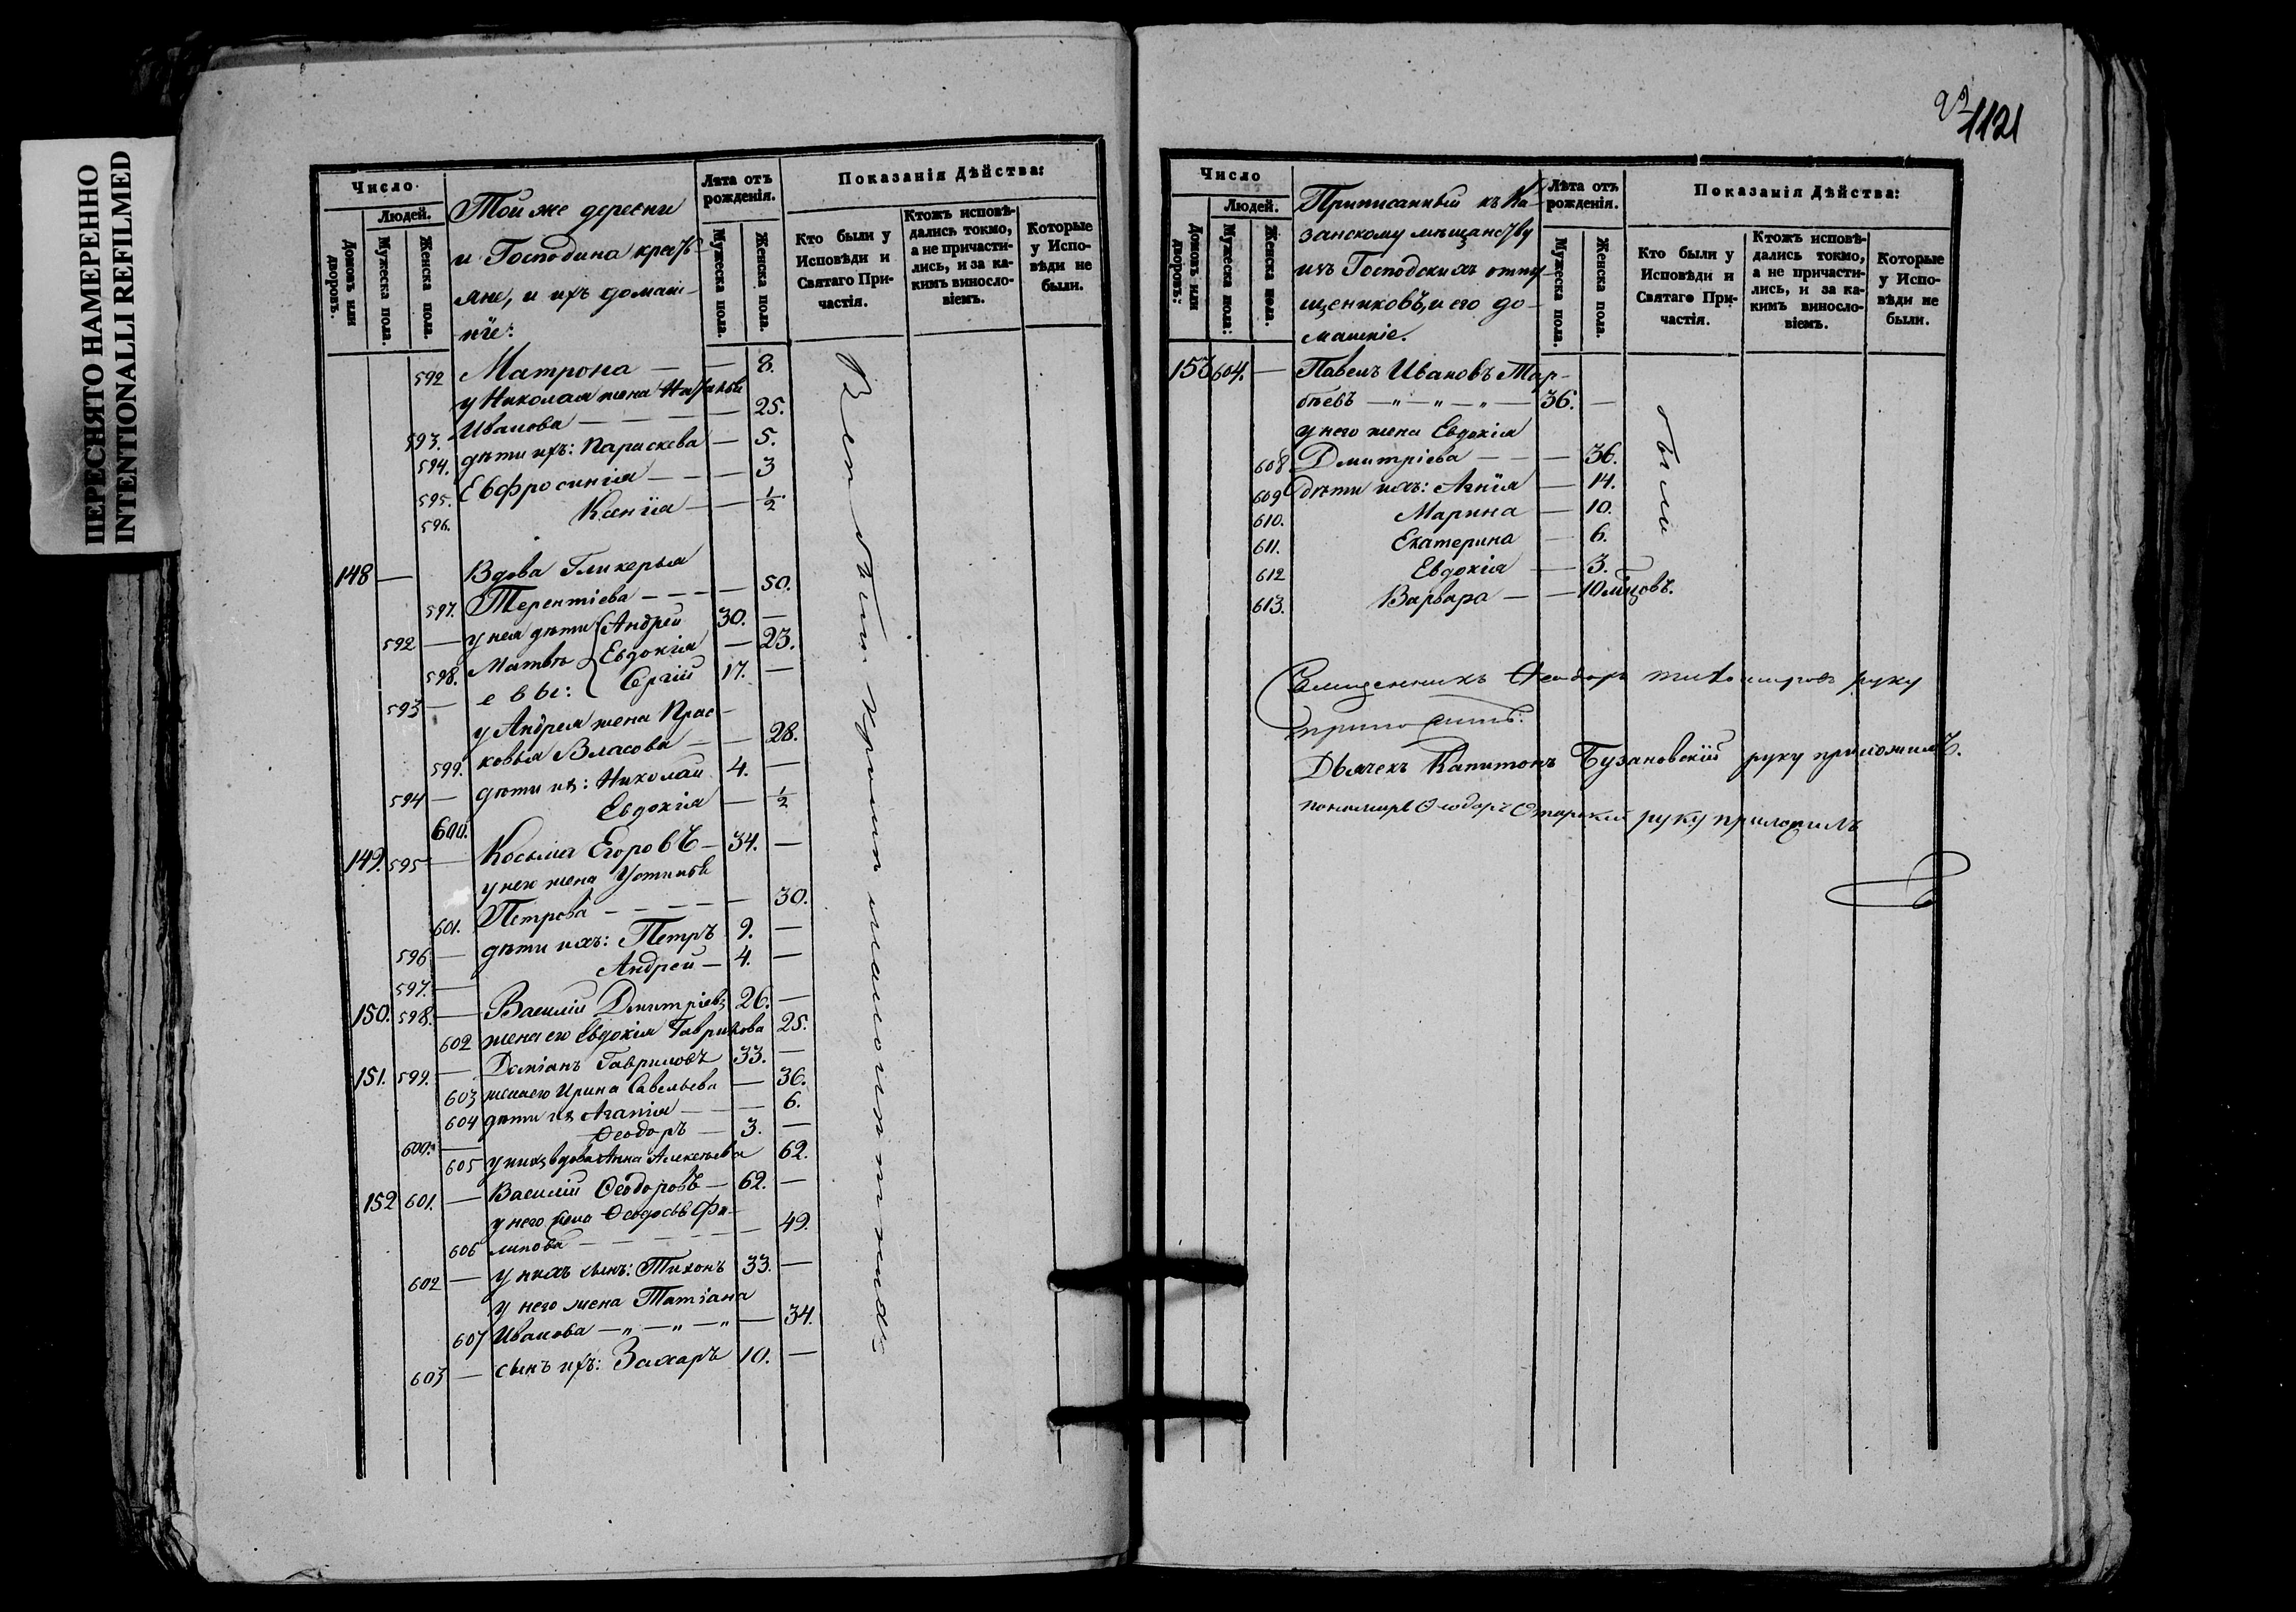 ПЕРЕСНЯТО НАМЕРЕННО
INTENTIONALLI REFILMED
Число
Людей.
Домовъ или дворовъ.
Мужеска пола.
Женска пола.
Той же деревни
и Господина кресть-
яне, и ихъ домаш-
нїе:
Лѣта отъ рожденія.
Мужеска пола.
Женска пола.
Показанія Дѣйства:
Кто были у Исповѣди и Святаго Причастія.
Ктожъ исповѣ-дались токмо, а не причасти-лись, и за ка-кимъ винословіемъ.
Которые у Испо-вѣди не были.
592 Матрона — — 8.
у Николая жена Наталья
593. Иванова — — — 25.
594. дѣти ихъ: Параскева — 5.
595. Евфросинія — — 3
596. Ксенїя — — ½
148 — Вдова Гликерья
597. Терентіева — — — 50.
592 — у нея дѣти Андрей 30. —
598. Матвѣ Евдокія — 23.
593 — евы: Сергій 17. —
у Андрея жена Прас-
599. ковья Власова — — 28.
594 — дѣти ихъ: Николай 4. —
600. Евдокія — ½
149. 595 — Косьма Егоровъ — 34. —
у него жена Устинья
601. Петрова — — — — 30.
596 — дѣти ихъ: Петръ 9. —
597. — Андрей — 4. —
150. 598. — Василій Дмитріевъ 26. —
602 жена его Евдокія Гаврилова 25.
151. 599. — Даміанъ Гавриловъ 33. —
603 жена его Ирина Савельева — 36.
604 дѣти ихъ Агапія — — 6.
600. — Ѳеодоръ — 3. —
605 у нихъ вдова Анна Алексѣева 62.
152 601. — Василій Ѳеодоровъ — 62. —
у него жена Ѳеодосья Фи-
606 липова — — — — 49.
602 — у нихъ сынъ: Тихонъ 33. —
у него жена Татіана
607 Иванова — „ — „ — „ — 34.
603 — сынъ ихъ: Захаръ 10. —
1121
Число
Людей.
Домовъ или дворовъ:
Мужеска пола:
Женска пола.
Приписанный къ Ка-
занскому мѣщанству
изъ Господскихъ отпу-
щениковъ, и его до-
машніе.
Лѣта отъ рожденія.
Мужеска пола.
Женска пола.
Показанія Дѣйства:
Кто были у Исповѣди и Святаго При-частія.
Ктожъ исповѣ-дались токмо, а не причасти-лись, и за ка-кимъ винословіемъ.
Которые у Испо-вѣди не были.
153 604. — Павелъ Ивановъ Тар-
бѣевъ — „ — „ — „ — 36. —
у него жена Евдокія
608 Дмитріева — — — 36.
609 дѣти ихъ: Агнїя — 14.
610. Марина — 10.
611. Екатерина — 6.
612 Евдокія — 3.
613. Варвара — — 10 мѣцовъ.
были
Священникъ Ѳеодоръ Тихомировъ руку
приложилъ:
Дьячекъ Капитонъ Бузановскій руку приложилъ.
пономарь Ѳеодоръ руку приложилъ